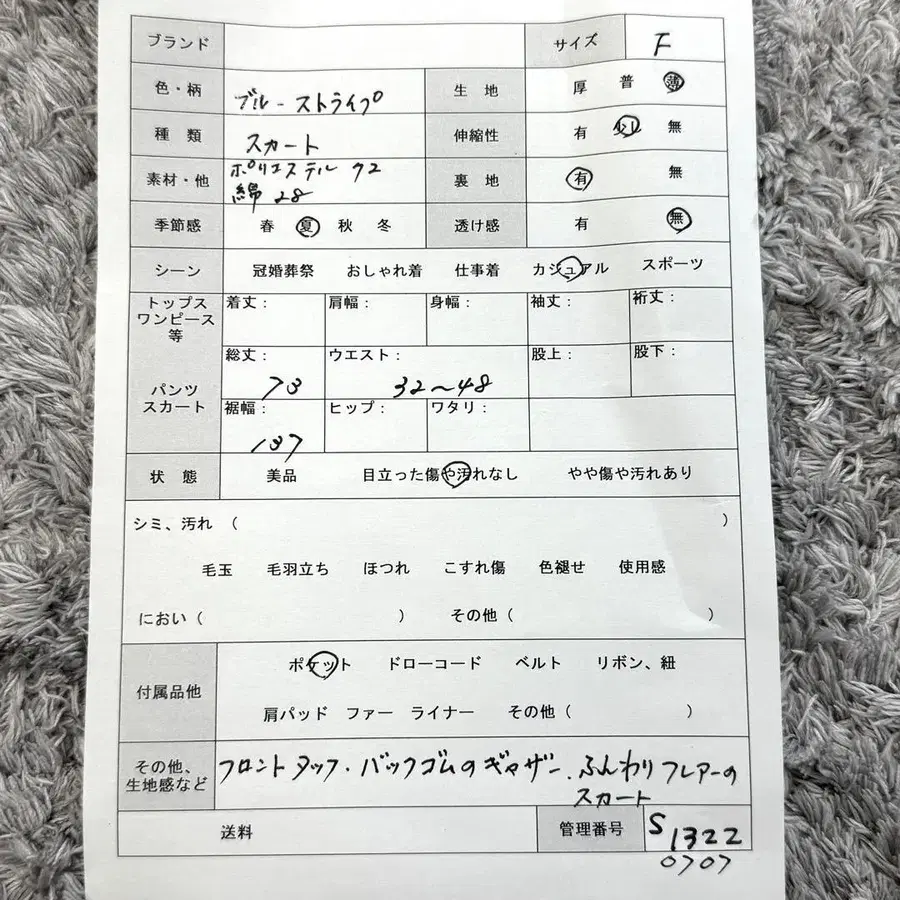 ブランド サイズ F
色・柄 ブルーストライプ 生 地 厚 普 薄
種 類 スカート 伸縮性 有 少し 無
素材・他 ポリエステル 72 裏 地 有 無
綿 28
季節感 春 夏 秋 冬 透け感 有 無
シーン 冠婚葬祭 おしゃれ着 仕事着 カジュアル スポーツ
トップス 着丈： 肩幅： 身幅： 袖丈： 裄丈：
ワンピース
等
総丈： ウエスト： 股上： 股下：
73 32〜48
パンツ
スカート 裾幅： ヒップ： ワタリ：
137
状 態 美品 目立った傷や汚れなし やや傷や汚れあり
シミ、汚れ （ ）
毛玉 毛羽立ち ほつれ こすれ傷 色褪せ 使用感
におい（ ） その他（ ）
付属品他 ポケット ドローコード ベルト リボン、紐
肩パッド ファー ライナー その他（ ）
その他、 フロントタック・バックゴムのギャザー、ふんわりフレアーの
生地感など スカート
送料 管理番号 S 1322
0707